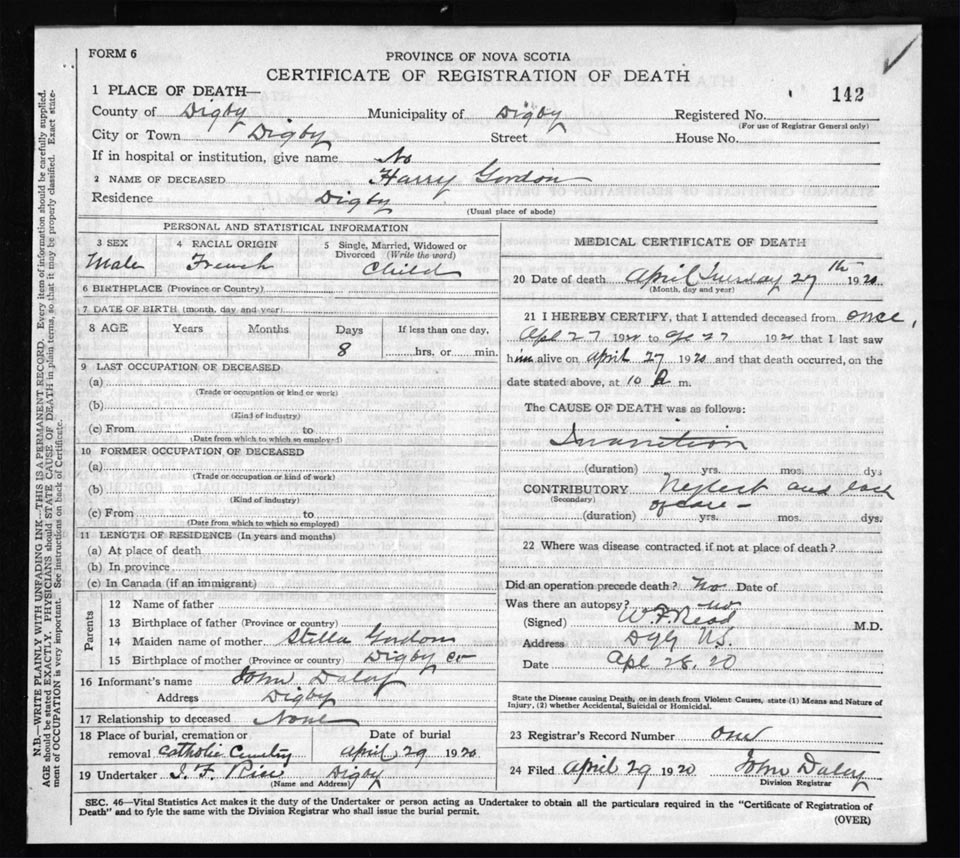 FORM 6
PROVINCE OF NOVA SCOTIA
CERTIFICATE OF REGISTRATION OF DEATH
142
1 PLACE OF DEATH—
County of Digby Municipality of Digby Registered No.
(For use of Registrar General only)
City or Town Digby Street House No.
If in hospital or institution, give name No
2 NAME OF DECEASED Harry Gordon
Residence Digby
(Usual place of abode)
PERSONAL AND STATISTICAL INFORMATION
3 SEX 4 RACIAL ORIGIN 5 Single, Married, Widowed or
Divorced (Write the word)
Male French Child
6 BIRTHPLACE (Province or Country)
7 DATE OF BIRTH (month, day and year)
8 AGE Years Months Days If less than one day,
8 hrs. or min.
9 LAST OCCUPATION OF DECEASED
(a)
(Trade or occupation or kind or work)
(b)
(Kind of industry)
(c) From to
(Date from which to which so employed)
10 FORMER OCCUPATION OF DECEASED
(a)
(Trade or occupation or kind of work)
(b)
(Kind of industry)
(c) From to
(Date from which to which so employed)
11 LENGTH OF RESIDENCE (In years and months)
(a) At place of death
(b) In province
(c) In Canada (if an immigrant)
Parents
12 Name of father
13 Birthplace of father (Province or country)
14 Maiden name of mother Stella Gordon
15 Birthplace of mother (Province or country) Digby Co
16 Informant's name John Daley
Address Digby
17 Relationship to deceased None
18 Place of burial, cremation or Date of burial
removal Catholic Cemetry April 29 1920
19 Undertaker Digby
(Name and Address)
MEDICAL CERTIFICATE OF DEATH
20 Date of death April Tuesday 27th 1920
(Month, day and year)
21 I HEREBY CERTIFY, that I attended deceased from once,
Apl 27 19 to Apl 27 19 that I last saw
him alive on April 27 1920 and that death occurred, on the
date stated above, at 10 m.
The CAUSE OF DEATH was as follows:
Inanition
(duration) yrs. mos. dys
CONTRIBUTORY Neglect and lack
(Secondary) of care –
(duration) yrs. mos. dys.
22 Where was disease contracted if not at place of death?
Did an operation precede death? No Date of
Was there an autopsy? no
(Signed) W. F. Read M.D.
Address N.S.
Date Apl 28. 20
State the Disease causing Death, or in death from Violent Causes, state (1) Means and Nature of
Injury, (2) whether Accidental, Suicidal or Homicidal.
23 Registrar's Record Number one
24 Filed April 29 1920 John Daley
Division Registrar
SEC. 46—Vital Statistics Act makes it the duty of the Undertaker or person acting as Undertaker to obtain all the particulars required in the "Certificate of Registration of
Death" and to fyle the same with the Division Registrar who shall issue the burial permit.
(OVER)
N.B.—WRITE PLAINLY WITH UNFADING INK—THIS IS A PERMANENT RECORD. Every item of information should be carefully supplied.
AGE should be stated EXACTLY. PHYSICIANS should STATE CAUSE OF DEATH in plain terms, so that it may be properly classified. Exact state-
ment of OCCUPATION is very important. See instructions on back of Certificate.